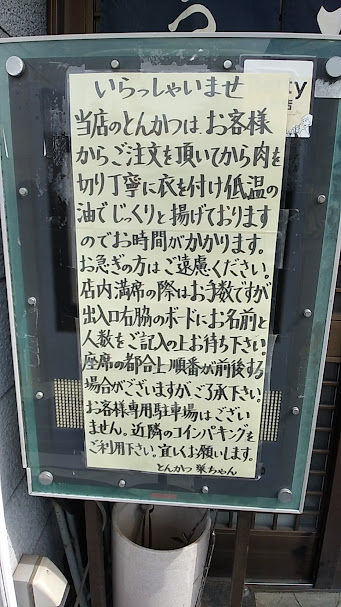 いらっしゃいませ
当店のとんかつは、お客様
からご注文を頂いてから肉を
切り丁寧に衣を付け低温の
油でじっくりと揚げております
のでお時間がかかります。
お急ぎの方はご遠慮ください。
店内満席の際はお手数ですが
出入口右脇のボードにお名前と
人数をご記入の上お待ち下さい。
座席の都合上順番が前後する
場合がございますが、ご了承下さい。
お客様専用駐車場はござい
ません。近隣のコインパーキングを
ご利用下さい。宜しくお願いします。
とんかつ 築ちゃん
ty
店